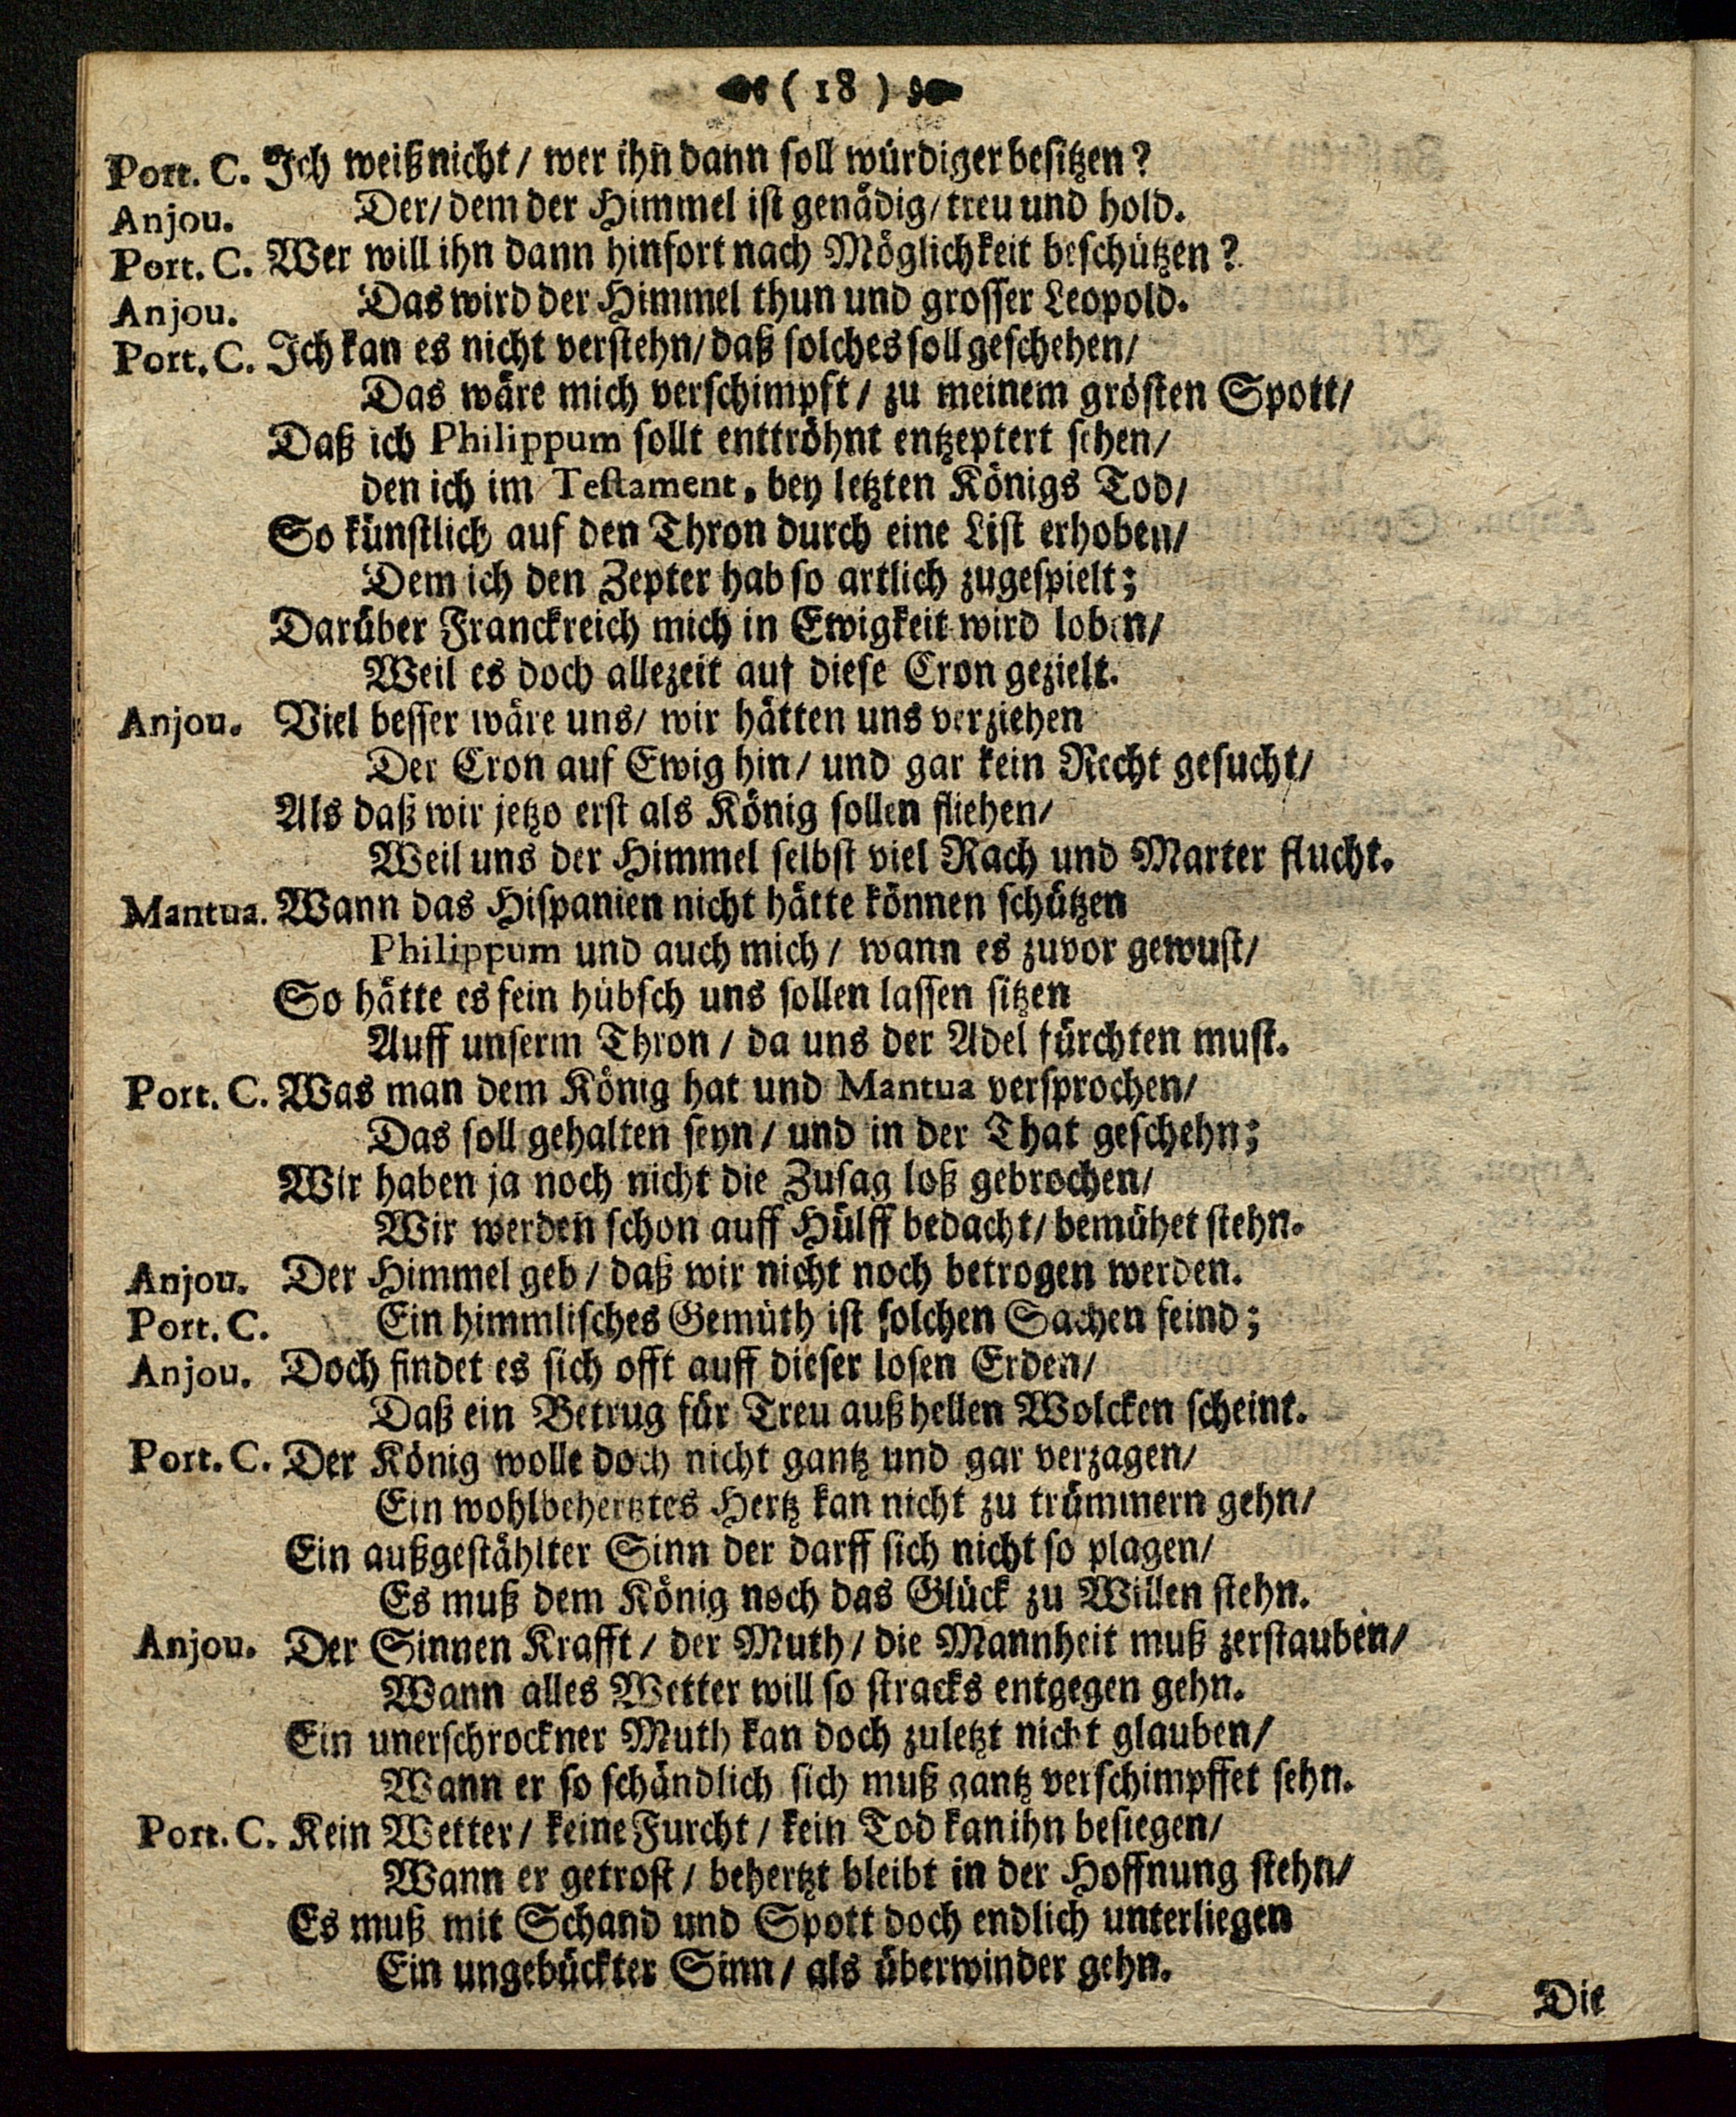 ( 18 )
Port. C. Ich weiß nicht / wer ihn dann soll würdiger besitzen?
Anjou. Der / dem der Himmel ist genädig / treu und hold.
Port. C. Wer will ihn dann hinfort nach Möglichkeit beschützen?
Anjou. Das wird der Himmel thun und grosser Leopold.
Port. C. Ich kan es nicht verstehn / daß solches soll geschehen /
Das wäre mich verschimpft / zu meinem grösten Spott /
Daß ich Philippum sollt enttröhnt entzeptert sehen /
den ich im Testament, bey letzten Königs Tod /
So künstlich auf den Thron durch eine List erhoben /
Dem ich den Zepter hab so artlich zugespielt;
Darüber Franckreich mich in Ewigkeit wird loben /
Weil es doch allezeit auf diese Cron gezielt.
Anjou. Viel besser wäre uns / wir hätten uns verziehen
Der Cron auf Ewig hin / und gar kein Recht gesucht /
Als daß wir jetzo erst als König sollen fliehen /
Weil uns der Himmel selbst viel Rach und Marter flucht.
Mantua. Wann das Hispanien nicht hätte können schützen
Philippum und auch mich / wann es zuvor gewust /
So hätte es fein hübsch uns sollen lassen sitzen
Auff unserm Thron / da uns der Adel fürchten must.
Port. C. Was man dem König hat und Mantua versprochen /
Das soll gehalten seyn / und in der That geschehn;
Wir haben ja noch nicht die Zusag loß gebrochen /
Wir werden schon auff Hülff bedacht / bemühet stehn.
Anjou. Der Himmel geb / daß wir nicht noch betrogen werden.
Port. C. Ein himmlisches Gemüth ist solchen Sachen feind;
Anjou. Doch findet es sich offt auff dieser losen Erden /
Daß ein Betrug für Treu auß hellen Wolcken scheint.
Port. C. Der König wolle doch nicht gantz und gar verzagen /
Ein wohlbehertztes Hertz kan nicht zu trümmern gehn /
Ein außgestählter Sinn der darff sich nicht so plagen /
Es muß dem König noch das Glück zu Willen stehn.
Anjou. Der Sinnen Krafft / der Muth / die Mannheit muß zerstauben /
Wann alles Wetter will so stracks entgegen gehn.
Ein unerschrockner Muth kan doch zuletzt nicht glauben /
Wann er so schändlich sich muß gantz verschimpffet sehn.
Port. C. Kein Wetter / keine Furcht / kein Tod kan ihn besiegen /
Wann er getrost / behertzt bleibt in der Hoffnung stehn /
Es muß mit Schand und Spott doch endlich unterliegen
Ein ungebückter Sinn / als überwinder gehn.
Die